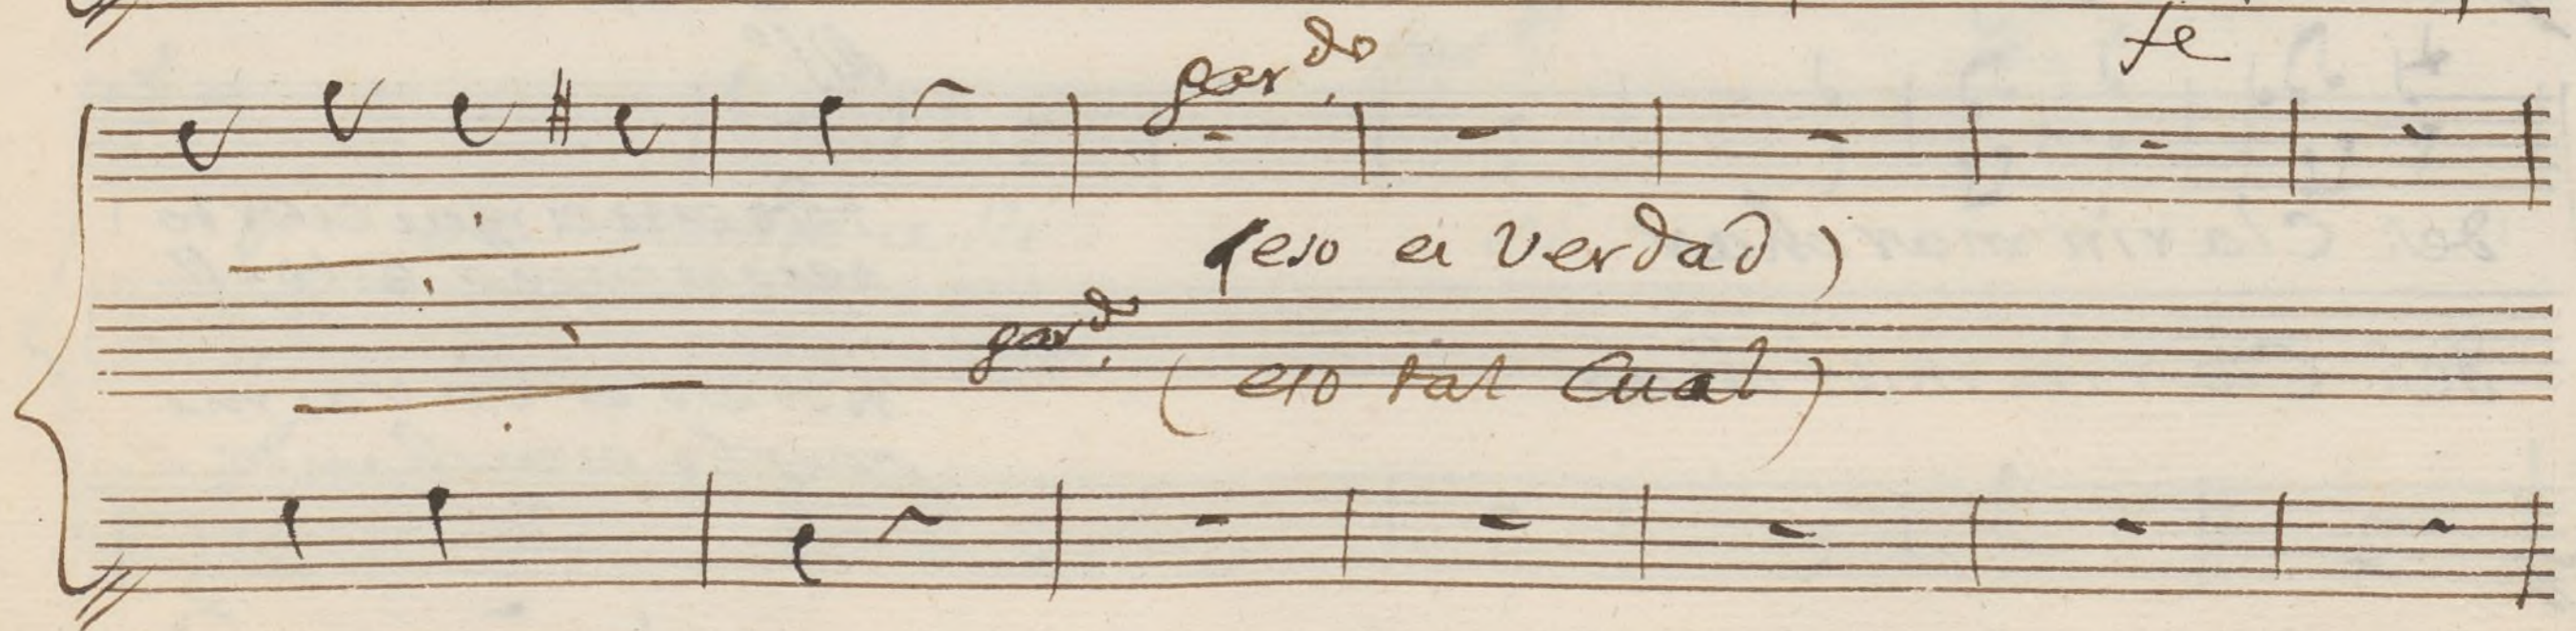 gar.do fe
(eso es verdad)
gar.do
(eso tal cual)